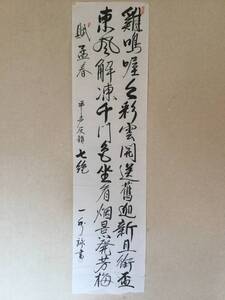 雞鳴喔々彩雲開送舊迎新且銜盃
東風解凍千門色坐看烟景發芳梅
賦孟春 平声灰韻 七絶 一 書